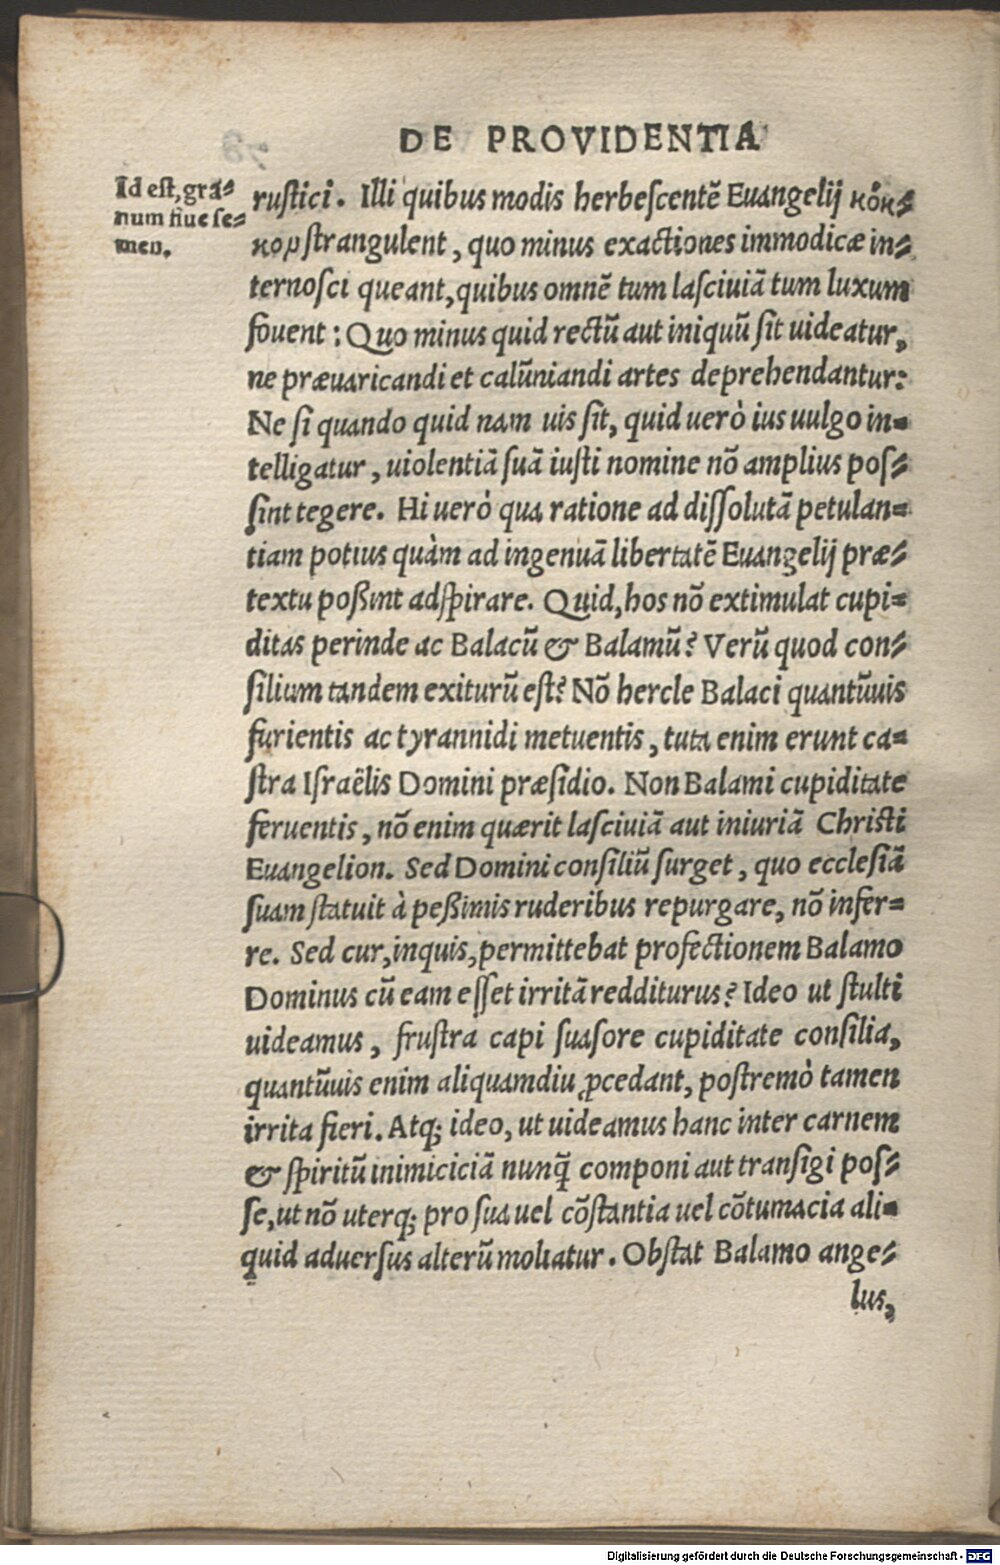 DE PROVIDENTIA
Id est, gra-
num siue se-
men.
rustici. Illi quibus modis herbescentẽ Euangelij κόκ-
κομ strangulent, quo minus exactiones immodicæ in-
ternosci queant, quibus omnẽ tum lasciuiã tum luxum
fouent: Quo minus quid rectũ aut iniquũ sit uideatur,
ne præuaricandi et calũniandi artes deprehendantur:
Ne si quando quid nam uis sit, quid uerò ius uulgo in-
telligatur, uiolentiã suã iusti nomine nõ amplius pos-
sint tegere. Hi uerò qua ratione ad dissolutã petulan-
tiam potius quàm ad ingenuã libertatẽ Euangelij præ-
textu poßint adspirare. Quid, hos nõ extimulat cupi-
ditas perinde ac Balacũ & Balamũ? Verũ quod con-
silium tandem exiturũ est? Nõ hercle Balaci quantũuis
furientis ac tyrannidi metuentis, tuta enim erunt ca-
stra Israëlis Domini præsidio. Non Balami cupiditate
feruentis, nõ enim quærit lasciuiã aut iniuriã Christi
Euangelion. Sed Domini consiliũ surget, quo ecclesiã
suam statuit à peßimis ruderibus repurgare, nõ infer-
re. Sed cur, inquis, permittebat profectionem Balamo
Dominus cũ eam esset irritã redditurus? Ideo ut stulti
uideamus, frustra capi suasore cupiditate consilia,
quantũuis enim aliquamdiu ꝓcedant, postremò tamen
irrita fieri. Atq; ideo, ut uideamus hanc inter carnem
& spiritũ inimiciciã nunq̃ componi aut transigi pos-
se, ut nõ uterq; pro sua uel cõstantia uel cõtumacia ali-
quid aduersus alterũ moliatur. Obstat Balamo ange-
lus,
Digitalisierung gefördert durch die Deutsche Forschungsgemeinschaft - DFG